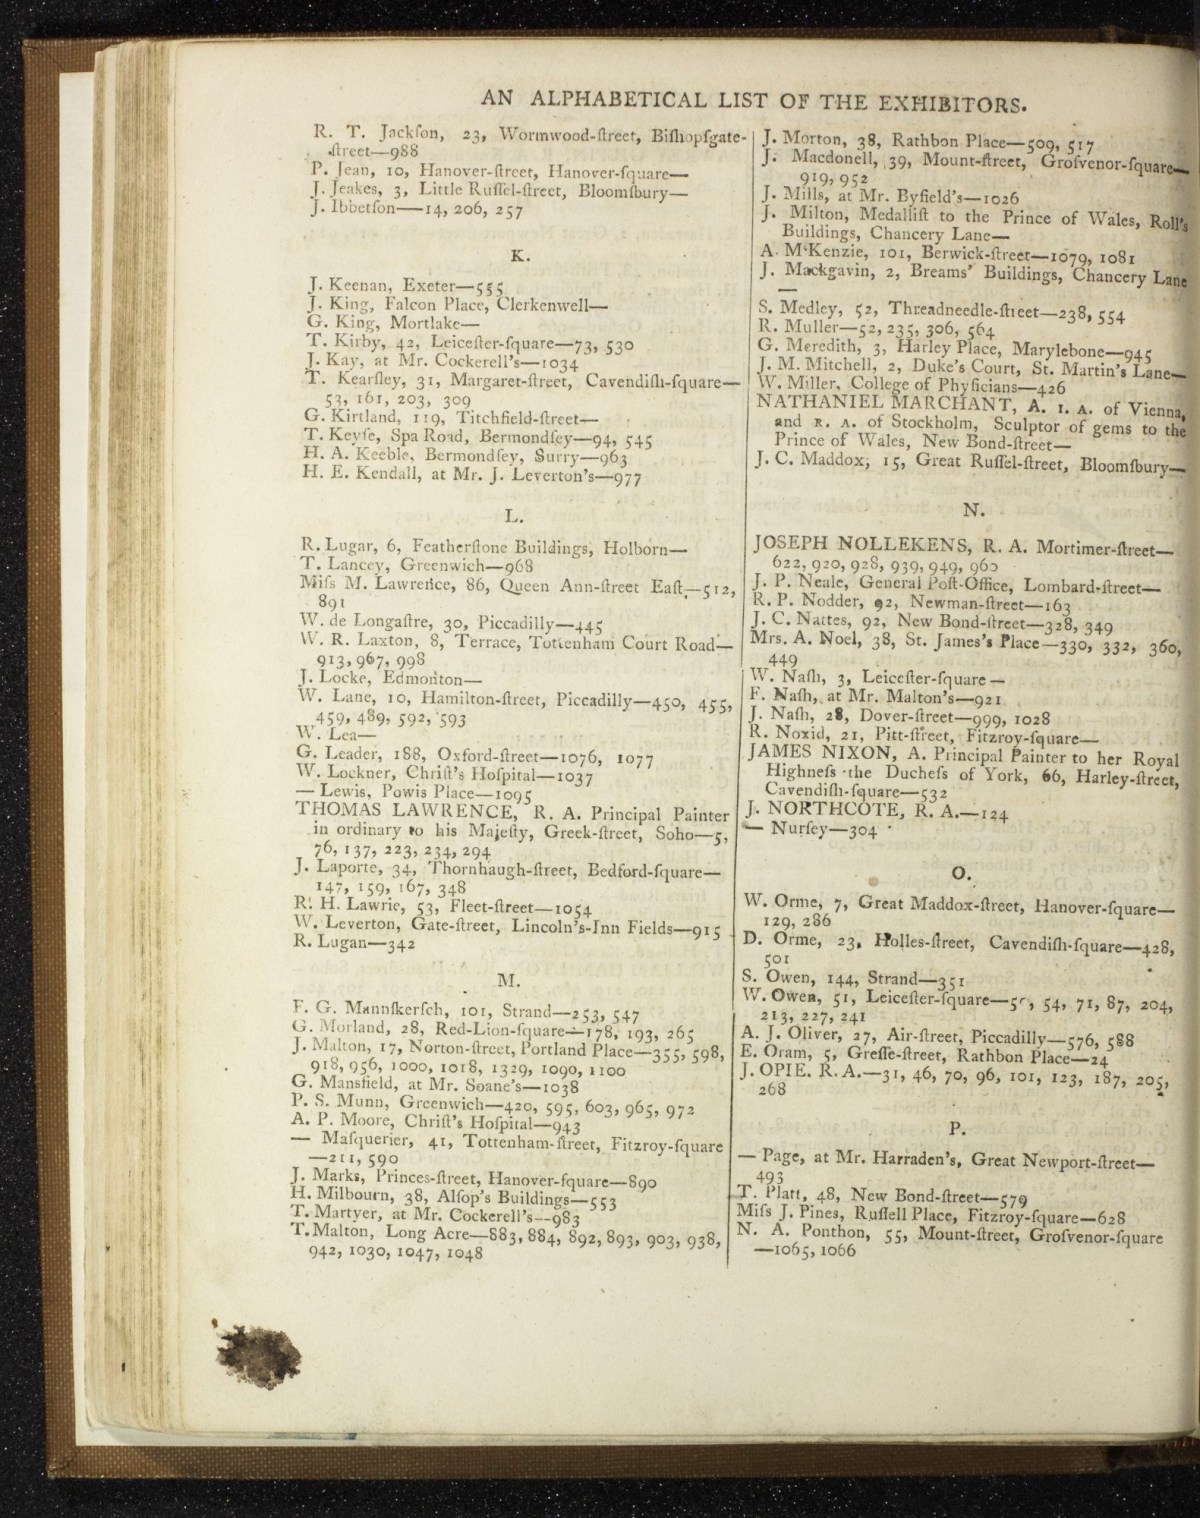 AN ALPHABETICAL LIST OF THE EXHIBITORS.
R. T. Jackſon, 23, Wormwood-ſtreet, Biſhopſgate-
ſtreet—988
P. Jean, 10, Hanover-ſtreet, Hanover-ſquare—
J. Jeakes, 3, Little Ruſſel-ſtreet, Bloomſbury—
J. Ibbetſon—14, 206, 257
K.
J. Keenan, Exeter—555
J. King, Falcon Place, Clerkenwell—
G. King, Mortlake—
T. Kirby, 42, Leiceſter-ſquare—73, 530
J. Kay, at Mr. Cockerell's—1034
T. Kearſley, 31, Margaret-ſtreet, Cavendiſh-ſquare—
53, 161, 203, 309
G. Kirtland, 119, Titchfield-ſtreet—
T. Keyſe, Spa Road, Bermondſey—94, 545
H. A. Keeble, Bermondſey, Surry—963
H. E. Kendall, at Mr. J. Leverton's—977
L.
R. Lugar, 6, Featherſtone Buildings, Holborn—
T. Lancey, Greenwich—968
Miſs M. Lawrence, 86, Queen Ann-ſtreet Eaſt—512,
891
W. de Longaſtre, 30, Piccadilly—445
W. R. Laxton, 8, Terrace, Tottenham Court Road—
913, 967, 998
J. Locke, Edmonton—
W. Lane, 10, Hamilton-ſtreet, Piccadilly—450, 455,
459, 489, 592, 593
W. Lea—
G. Leader, 188, Oxford-ſtreet—1076, 1077
W. Lockner, Chriſt's Hoſpital—1037
— Lewis, Powis Place—1095
THOMAS LAWRENCE, R. A. Principal Painter
in ordinary to his Majeſty, Greek-ſtreet, Soho—5,
76, 137, 223, 234, 294
J. Laporte, 34, Thornhaugh-ſtreet, Bedford-ſquare—
147, 159, 167, 348
R. H. Lawrie, 53, Fleet-ſtreet—1054
W. Leverton, Gate-ſtreet, Lincoln's-Inn Fields—915
R. Lugan—342
M.
F. G. Mannſkerſch, 101, Strand—253, 547
G. Morland, 28, Red-Lion-ſquare—178, 193, 265
J. Malton, 17, Norton-ſtreet, Portland Place—355, 598,
918, 956, 1000, 1018, 1329, 1090, 1100
G. Mansfield, at Mr. Soane's—1038
P. S. Munn, Greenwich—420, 595, 603, 965, 972
A. P. Moore, Chriſt's Hoſpital—943
— Maſquerier, 41, Tottenham-ſtreet, Fitzroy-ſquare
—211, 590
J. Marks, Princes-ſtreet, Hanover-ſquare—890
H. Milbourn, 38, Alſop's Buildings—553
T. Martyer, at Mr. Cockerell's—983
T. Malton, Long Acre—883, 884, 892, 893, 903, 938,
942, 1030, 1047, 1048
J. Morton, 38, Rathbon Place—509, 517
J. Macdonell, 39, Mount-ſtreet, Groſvenor-ſquare—
919, 952
J. Mills, at Mr. Byfield's—1026
J. Milton, Medalliſt to the Prince of Wales, Roll's
Buildings, Chancery Lane—
A. M‘Kenzie, 101, Berwick-ſtreet—1079, 1081
J. Mackgavin, 2, Breams' Buildings, Chancery Lane
—
S. Medley, 52, Threadneedle-ſtreet—238, 554
R. Muller—52, 235, 306, 564
G. Meredith, 3, Harley Place, Marylebone—945
J. M. Mitchell, 2, Duke's Court, St. Martin's Lane—
W. Miller, College of Phyſicians—426
NATHANIEL MARCHANT, A. I. A. of Vienna,
and R. A. of Stockholm, Sculptor of gems to the
Prince of Wales, New Bond-ſtreet—
J. C. Maddox, 15, Great Ruſſel-ſtreet, Bloomſbury—
N.
JOSEPH NOLLEKENS, R. A. Mortimer-ſtreet—
622, 920, 928, 939, 949, 960
J. P. Neale, General Poſt-Office, Lombard-ſtreet—
R. P. Nodder, 92, Newman-ſtreet—163
J. C. Nattes, 92, New Bond-ſtreet—328, 349
Mrs. A. Noel, 38, St. James's Place—330, 332, 360,
449
W. Naſh, 3, Leiceſter-ſquare—
F. Naſh, at Mr. Malton's—921
J. Naſh, 28, Dover-ſtreet—999, 1028
R. Noxid, 21, Pitt-ſtreet, Fitzroy-ſquare—
JAMES NIXON, A. Principal Painter to her Royal
Highneſs the Ducheſs of York, 66, Harley-ſtreet,
Cavendiſh-ſquare—532
J. NORTHCOTE, R. A.—124
— Nurſey—304
O.
W. Orme, 7, Great Maddox-ſtreet, Hanover-ſquare—
129, 286
D. Orme, 23, Holles-ſtreet, Cavendiſh-ſquare—428,
501
S. Owen, 144, Strand—351
W. Owen, 51, Leiceſter-ſquare— 54, 71, 87, 204,
213, 227, 241
A. J. Oliver, 27, Air-ſtreet, Piccadilly—576, 588
E. Oram, 5, Greſſe-ſtreet, Rathbon Place—24
J. OPIE, R. A.—31, 46, 70, 96, 101, 123, 187, 205,
268
P.
— Page, at Mr. Harraden's, Great Newport-ſtreet—
493
T. Platt, 48, New Bond-ſtreet—579
Miſs J. Pines, Ruſſell Place, Fitzroy-ſquare—628
N. A. Ponthon, 55, Mount-ſtreet, Groſvenor-ſquare
—1065, 1066